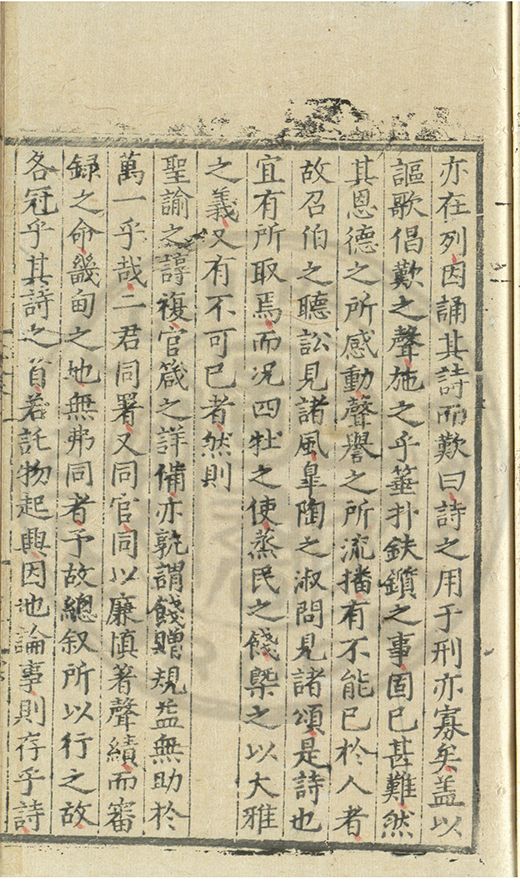 亦在列因誦其詩而歎曰詩之用于刑亦寡矣盖以
謳歌倡歎之聲施之乎箠扑鈇鑕之事固已甚難然
其恩德之所感動聲譽之所流播有不能已於人者
故召伯之聽訟見諸風臯陶之淑問見諸頌是詩也
宜有所取焉而况四牡之使烝民之餞槩之以大雅
之義又有不可已者然則
聖諭之諄複官箴之詳備亦孰謂餞贈規益無助於
萬一乎哉二君同署又同官同以廉慎著聲績而審
錄之命畿甸之地無弗同者予故總叙所以行之故
各冠乎其詩之首若託物起興因地論事則存乎詩